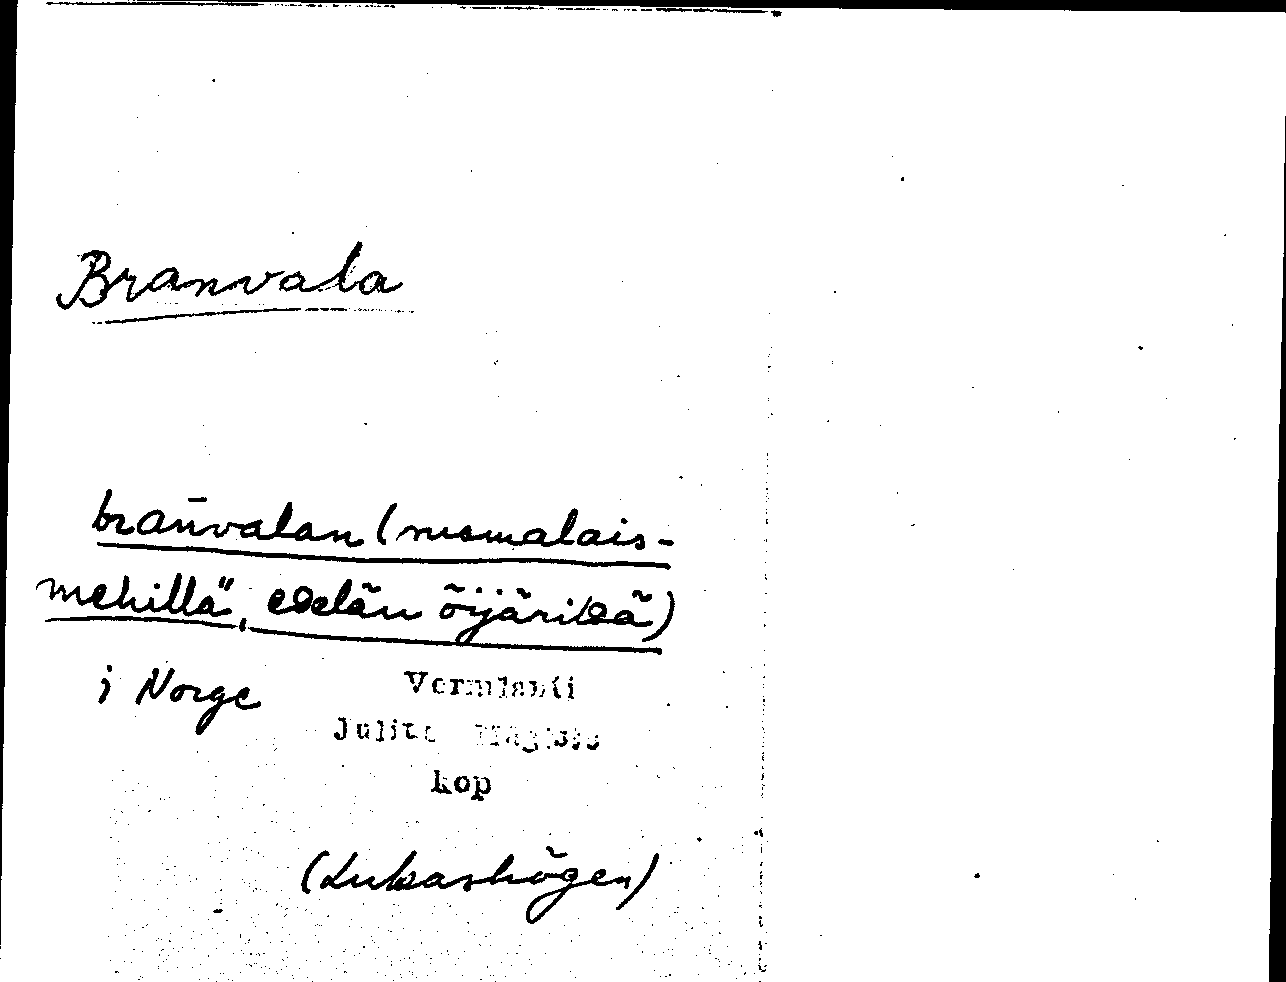 Branvala
bran̄valan (ruomalais-
mehillä", edelän öijärikä)
i Norge
Vermlanti
Julita
kop
(Lukashögen)